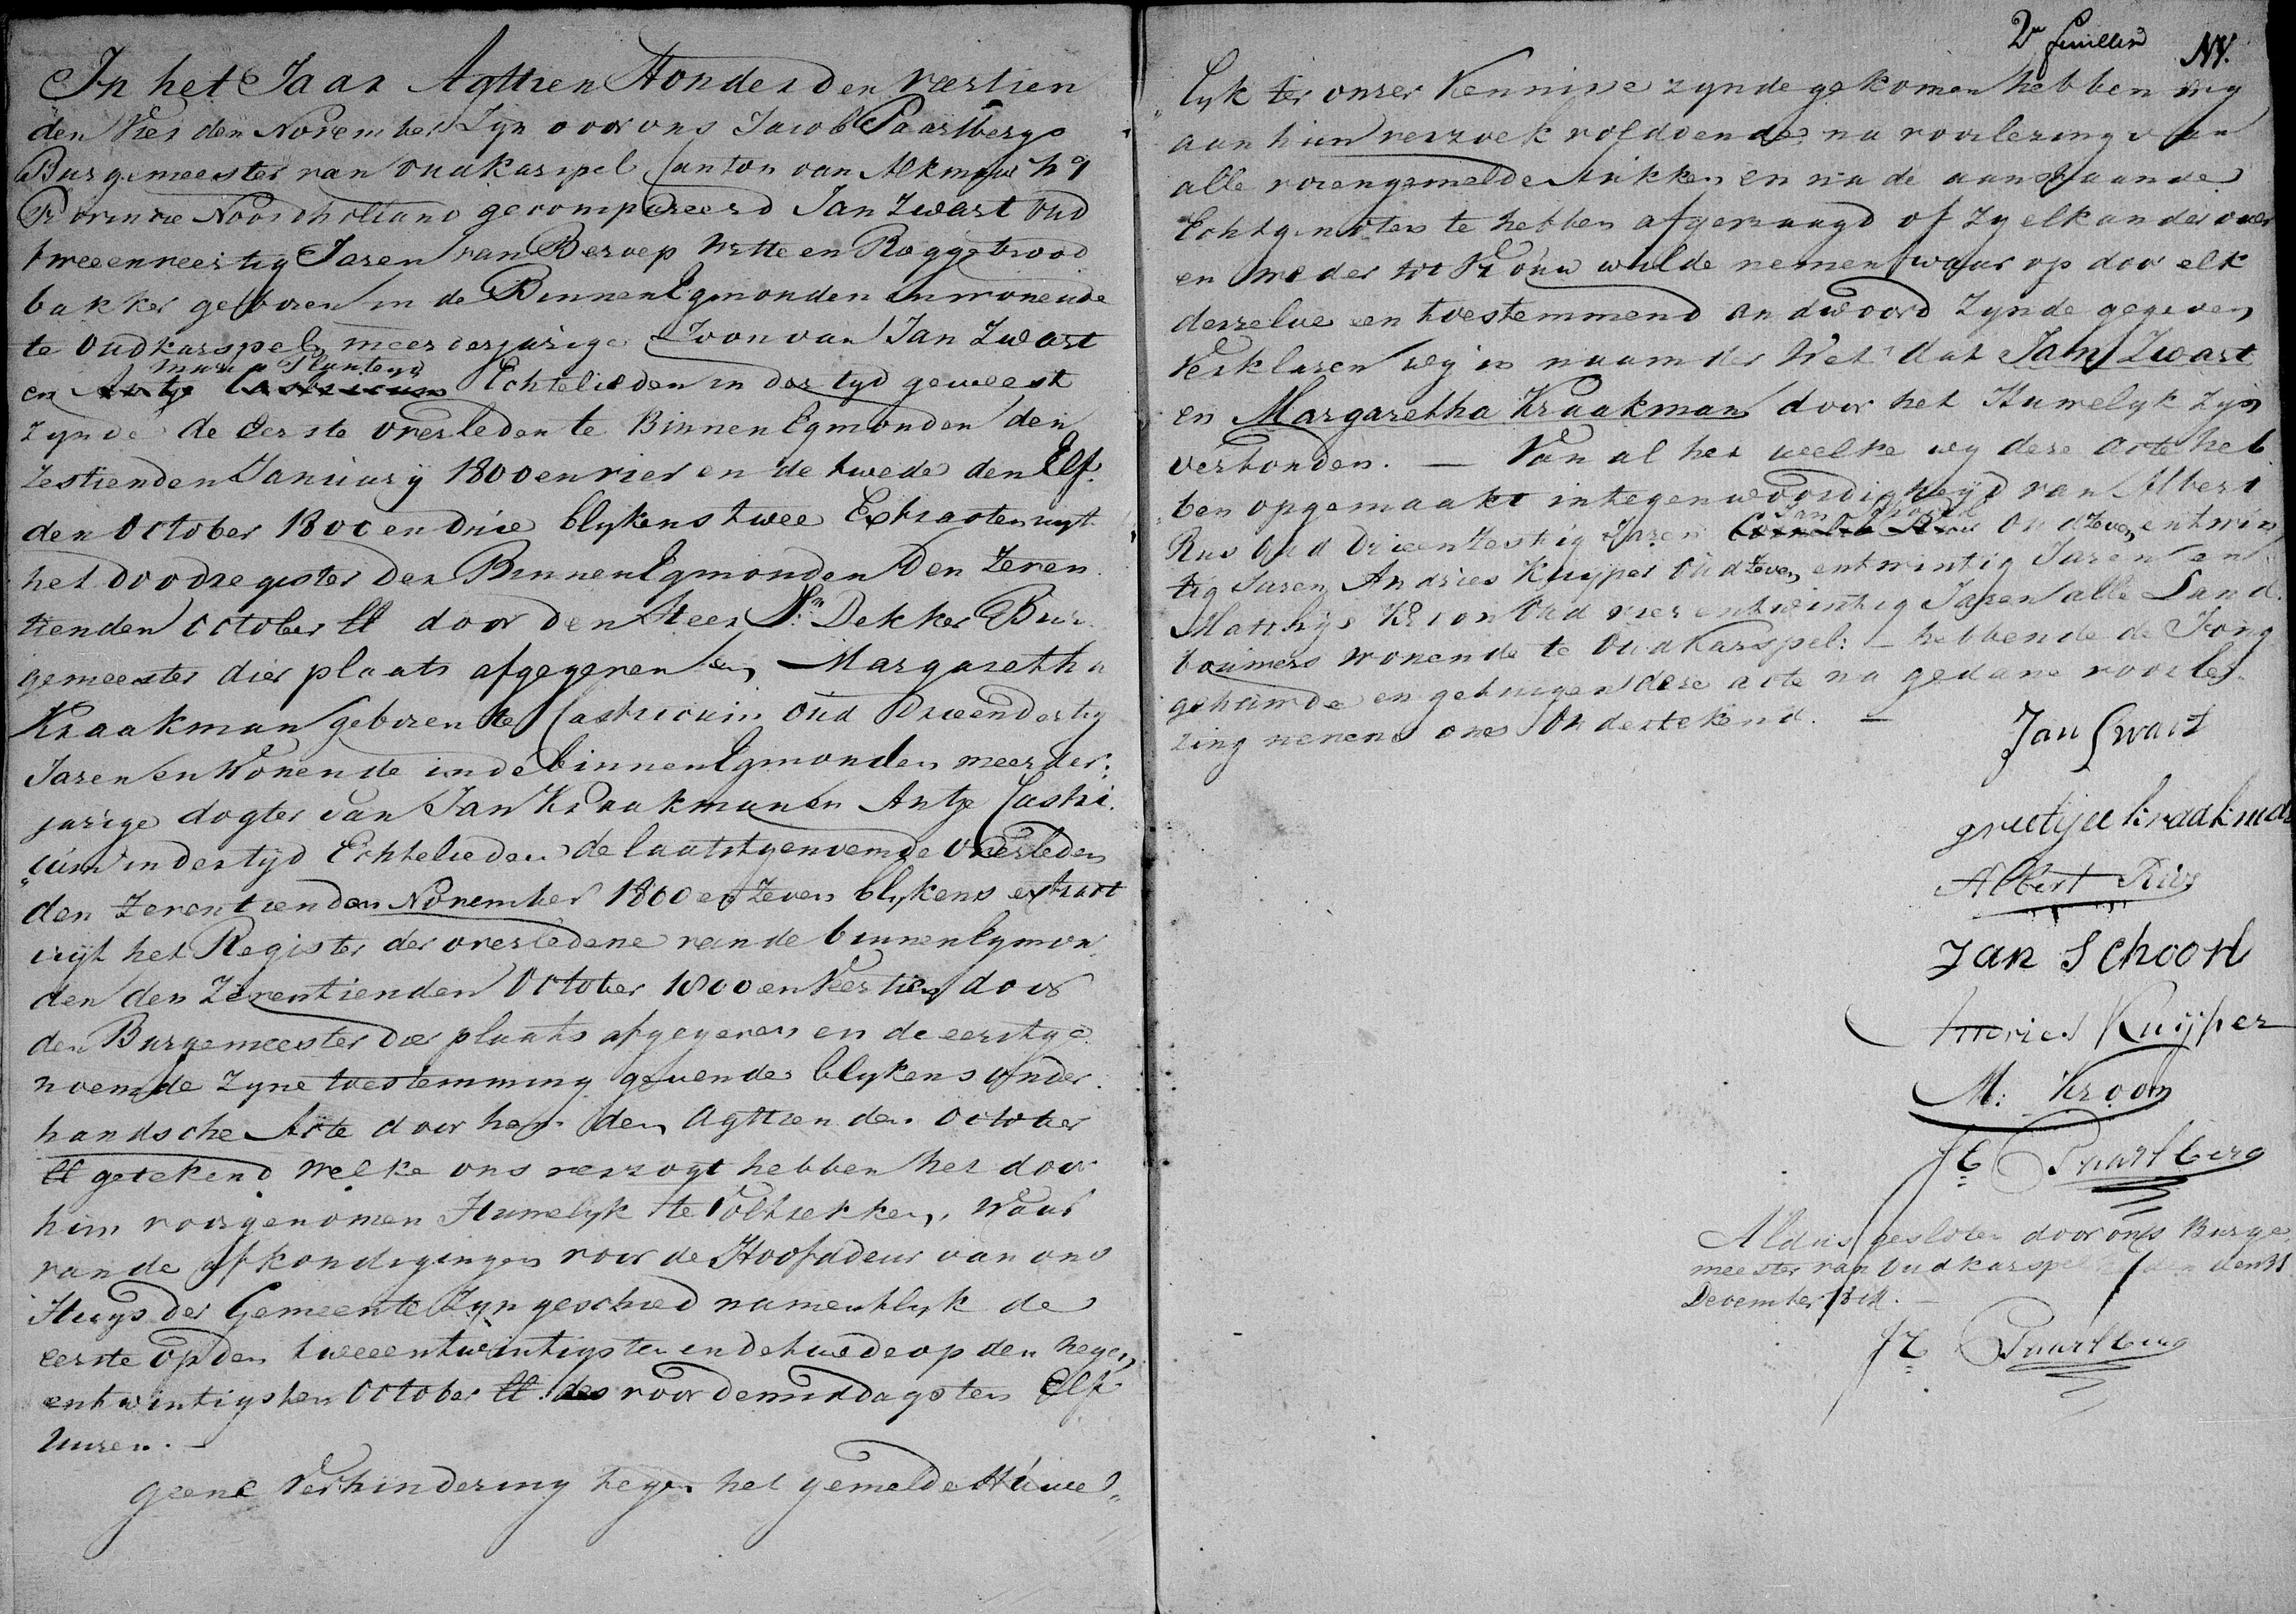 In het Jaar Agttien Honderd en veertien
den Vierden November Zyn voor ons Jacob Paarlberg
Burgemeester van Oudkarspel Canton van Alkmaar
Provincie Noordholland gecompareerd Jan Zwart oud
twee en veertig Jaren van Beroep Witte en Roggebrood
bakker geboren in de Binnen Egmonden en wonende
te Oudkarspel meerderjarige Zoon van Jan Zwart
Maria Plantens
en Antje Castricum Echtelieden in der tyd geweest
zynde de eerste overleden te Binnen Egmonden den
Zestienden January 1800 en vier en de twede den Elf
den October 1800 en Drie blykens twee Extracten uyt
het doodregister der Binnen Egmonden den Zeven
tienden October ll door den Heer Dekker Bur
gemeester dier plaats afgegeven en Margaretha
Kraakman geboren te Castricum oud Drieendertig
Jaren en Wonende in de binnen Egmonden meerder
jarige dogter van Jan Kraakman en Antje Castri
cum in der tyd Echtelieden de laatstgenoemde overleden
den Zeventienden November 1800 en Zeven blykens extract
uyt het Register der overledene van de binnen Egmon
den den Zeventienden October 1800 en Veertien door
den Burgemeester dier plaats afgegeven en de eerstge
noemde Zyne toestemming gevende blykens onder
handsche Acte door hem den Agttienden October
ll getekend Welke ons verzogt hebben het door
hun voorgenomen Huwelyk te Voltrekken, Waar
van de afkondigingen voor de Hoofddeur van ons
Huys der Gemeente Zyn geschied namentlyk de
eerste op den tweeentwintigsten en de twede op den negen
entwintigsten October ll. des voor demiddags ten Elf
Uuren. —
Geene Verhindering tegen het gemelde Huwe
2e feuillet NV.
lyk ter onser Kennisse zynde gekomen hebben wy
aan hun verzoek voldoende na voorlezing van
alle vorengemelde stukken en na de aanstaande
Echtgenoten te hebben afgevraagd of Zy elkander over
en weder tot Vrouw wilde nemen waar op door elk
derzelve een toestemmend andwoord Zynde gegeven
Verklaren wy in naam der Wet dat Jan Zwart
en Margaretha Kraakman door het Huwelyk Zyn
verbonden. — Van al het welke wy deze acte heb
ben opgemaakt in tegenwoordigheyd van Albert
Jan Schoorl
Rus oud Drieenzestig Jaren Oud Zeven entwin
tig Jaren, Andries Kuyper Oud Zeven entwintig Jaren en
Matthys Kroon Oud vier entwintig Jaren alle Land
bouwers wonende te Oudkarspel: — hebbende de Jong
gehuwde en getuigen deze acte na gedane voorle
zing nevens ons Ondertekend. —
Jan Swart
grietije kraakman
Albert Rus
Jan Schoorl
Andries Kuijper
M: Kroon
Jb Paarlberg
Aldus gesloten door ons Burge
meester van Oudkarspel den 31
December 1814. —
Jb Paarlberg